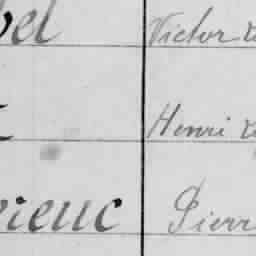 bel Victor
Henri
rieuc Pierr